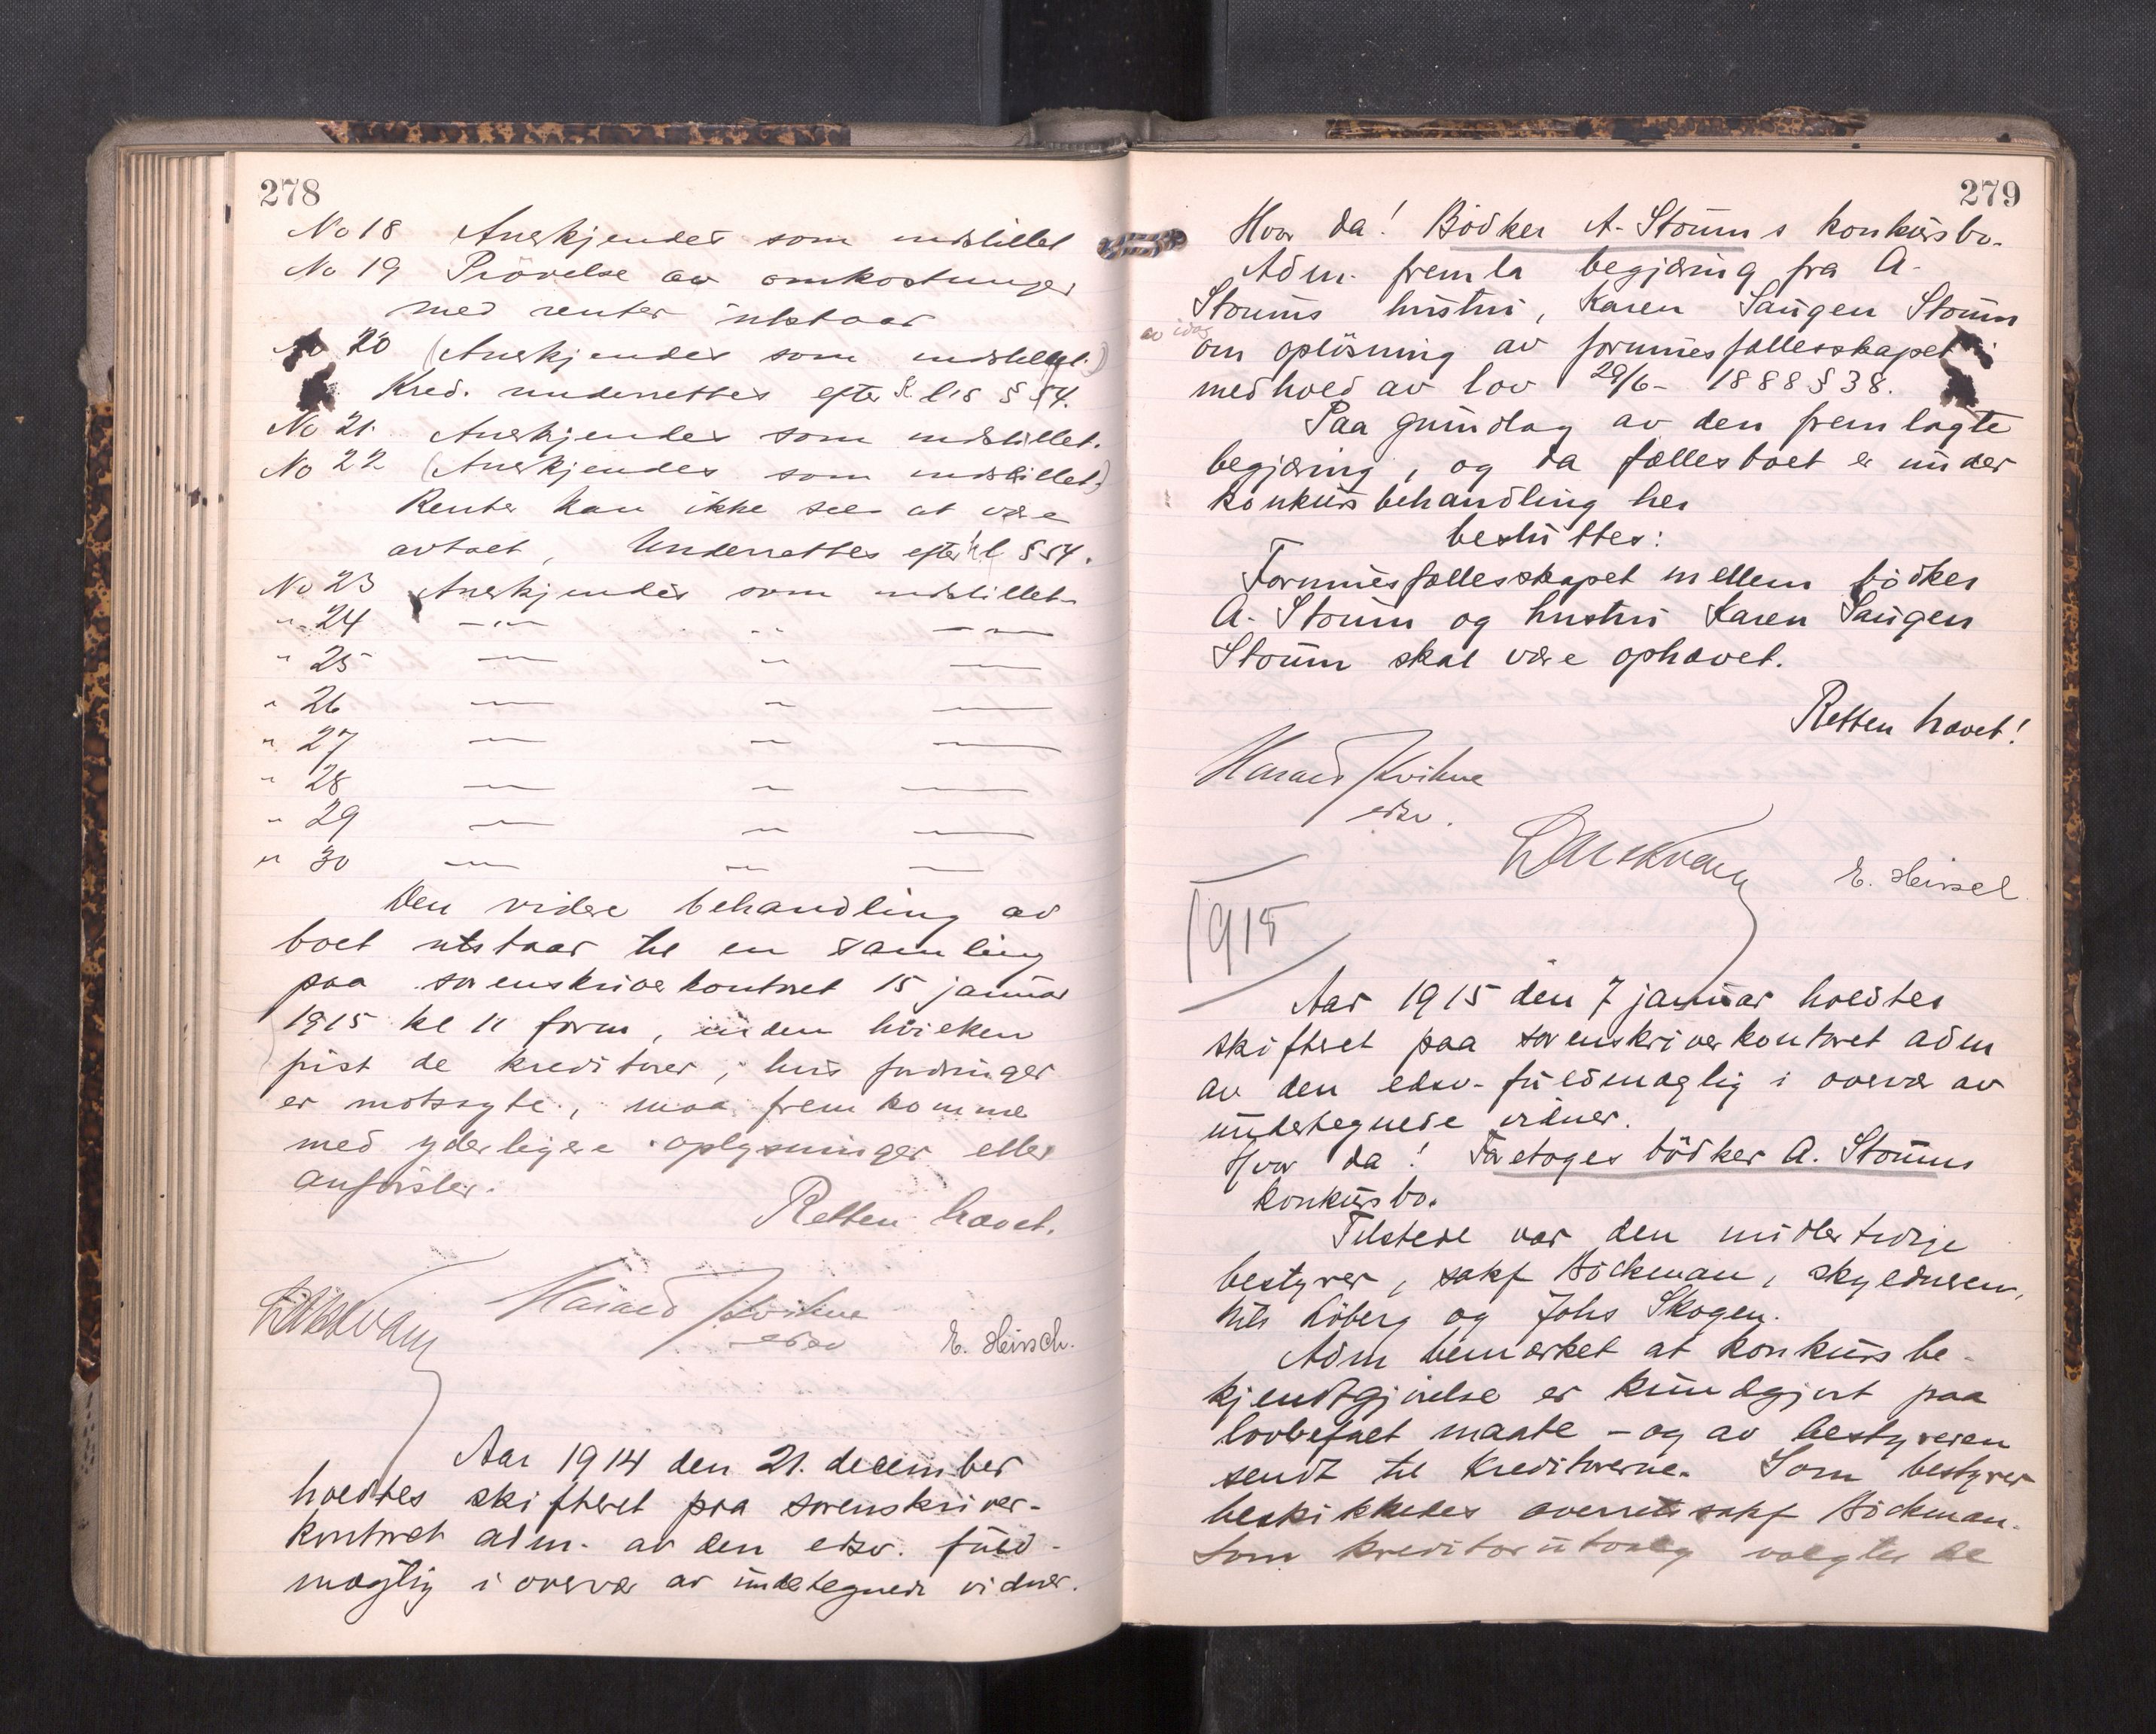 278
No 18 Anerkjendes som indstillet
No 19 Prövelse av omkostninger
med renter utstaar
No 20 (Anerkjendes som indstillet.)
Kred. underrettes efter K. l's § 54.
No 21. Anerkjendes som indstillet.
No 22 (Anerkjendes som indstillet.)
Renter kan ikke sees at være
avtalt, Underrettes efter kl § 54.
No 23 Anerkjendes som indstillet.
" 24 — " —
" 25 — " —
" 26 — " —
" 27 — " —
" 28 — " —
" 29 — " —
" 30 — " —
Den videre behandling av
boet utstaar til en samling
paa sorenskriverkontoret 15 januar
1915 kl 11 form, inden hvilken
frist de kreditorer, hvis fordringer
er motsagte, maa fremkomme
med yderligere oplysninger eller
anførsler.
Retten hævet.
Harald Kvihne
edsv
E. Hirsch.
Aar 1914 den 21. december
holdtes skifteret paa sorenskriver-
kontoret adm. av den edsv. fuld-
mægtig i overvær av undertegnede vidner.
279
Hvor da! Bödker A. Stoums konkursbo.
Adm. fremla begjæring fra A.
Stoums hustru, Karen Saugen Stoum
av idag
om oplösning av formuesfællesskapet i
medhold av lov 29/6- 1888 § 38.
Paa grundlag av den fremlagte
begjæring, og da fællesboet er under
konkursbehandling her
besluttes:
Formuesfællesskapet mellem bödker
A. Stoum og hustru Karen Saugen
Stoum skal være ophævet.
Retten hævet!
Harald Kvihne
edsv.
E. Hirsch
1915
Aar 1915 den 7 januar holdtes
skifteret paa sorenskriverkontoret adm
av den edsv. fuldmægtig i overvær av
undertegnede vidner.
Hvor da! Foretoges bödker A. Stoums
konkursbo.
Tilstede var den midlertidige
bestyrer, sakf Böckman, skyldneren,
Nils Löberg og Johs Skogen.
Adm bemærket at konkursbe-
kjendtgjörelse er kundgjort paa
lovbefalt maate - og av bestyreren
sendt til kreditorerne. Som bestyrer
beskikkedes overretssakf Böckman.
Som kreditorutvalg valgtes de